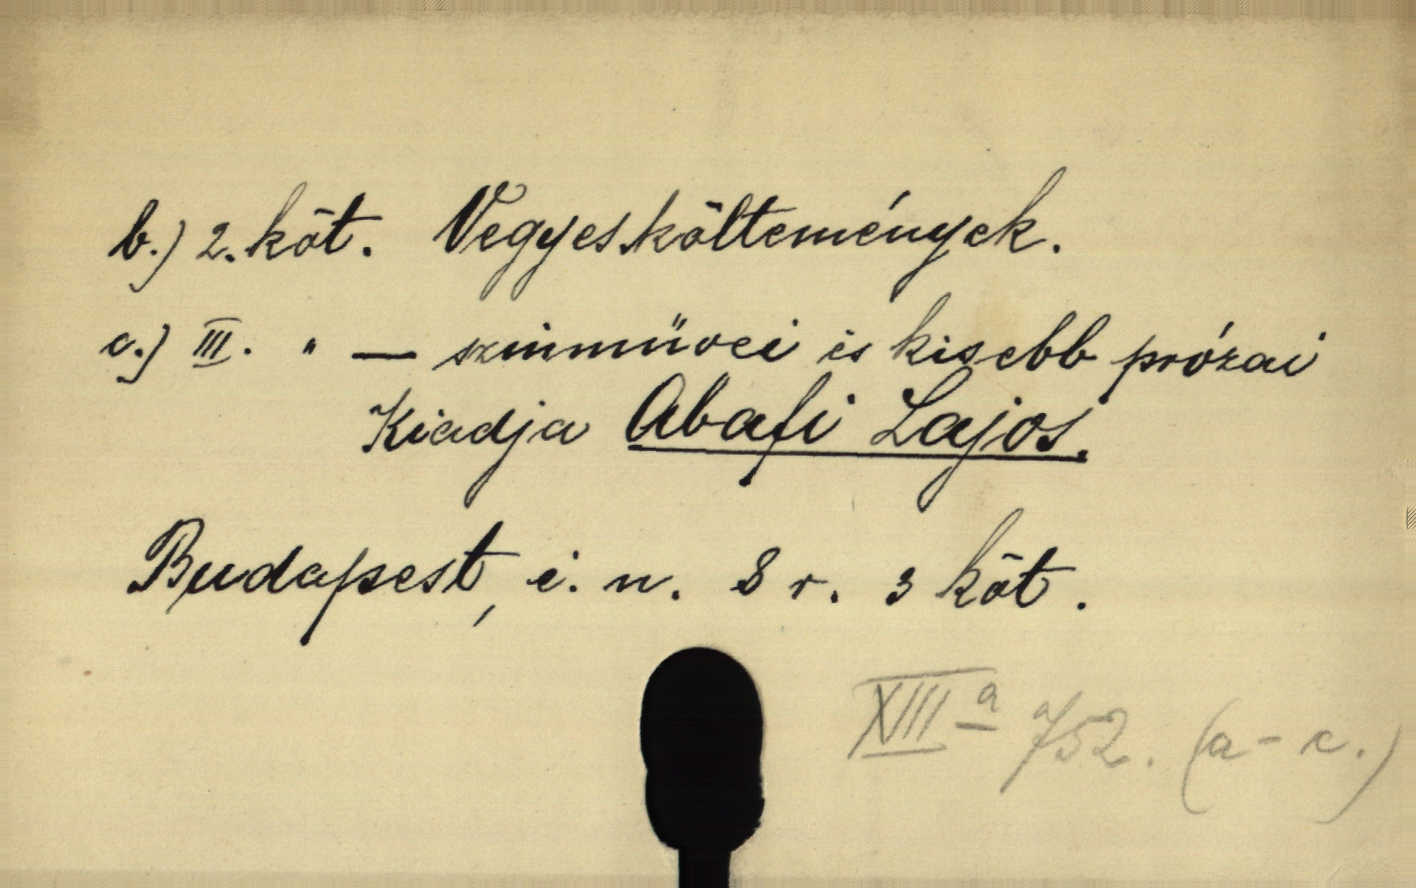 b.) 2. köt. Vegyes költemények.
c.) III. " — szinművei és kisebb prózai
Kiadja Abafi Lajos.
Budapest, é. n. 8 r. 3 köt.
XIII a 752. (a - c.)